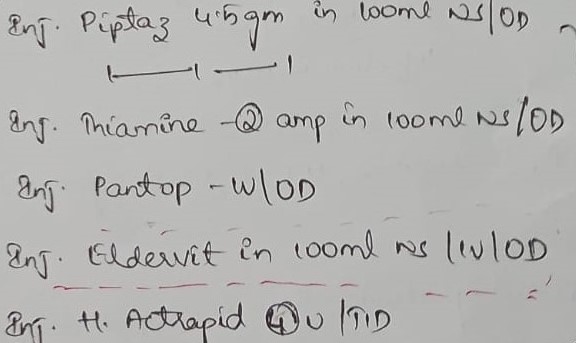 Inj. Piptaz 4.5gm in 100ml NS/OD
Inj. Thiamine - ② amp in 100ml NS/OD
Inj. Pantop - IV/OD
Inj. Eldervit in 100ml NS/IV/OD
Inj. H. Actrapid ④U/TID